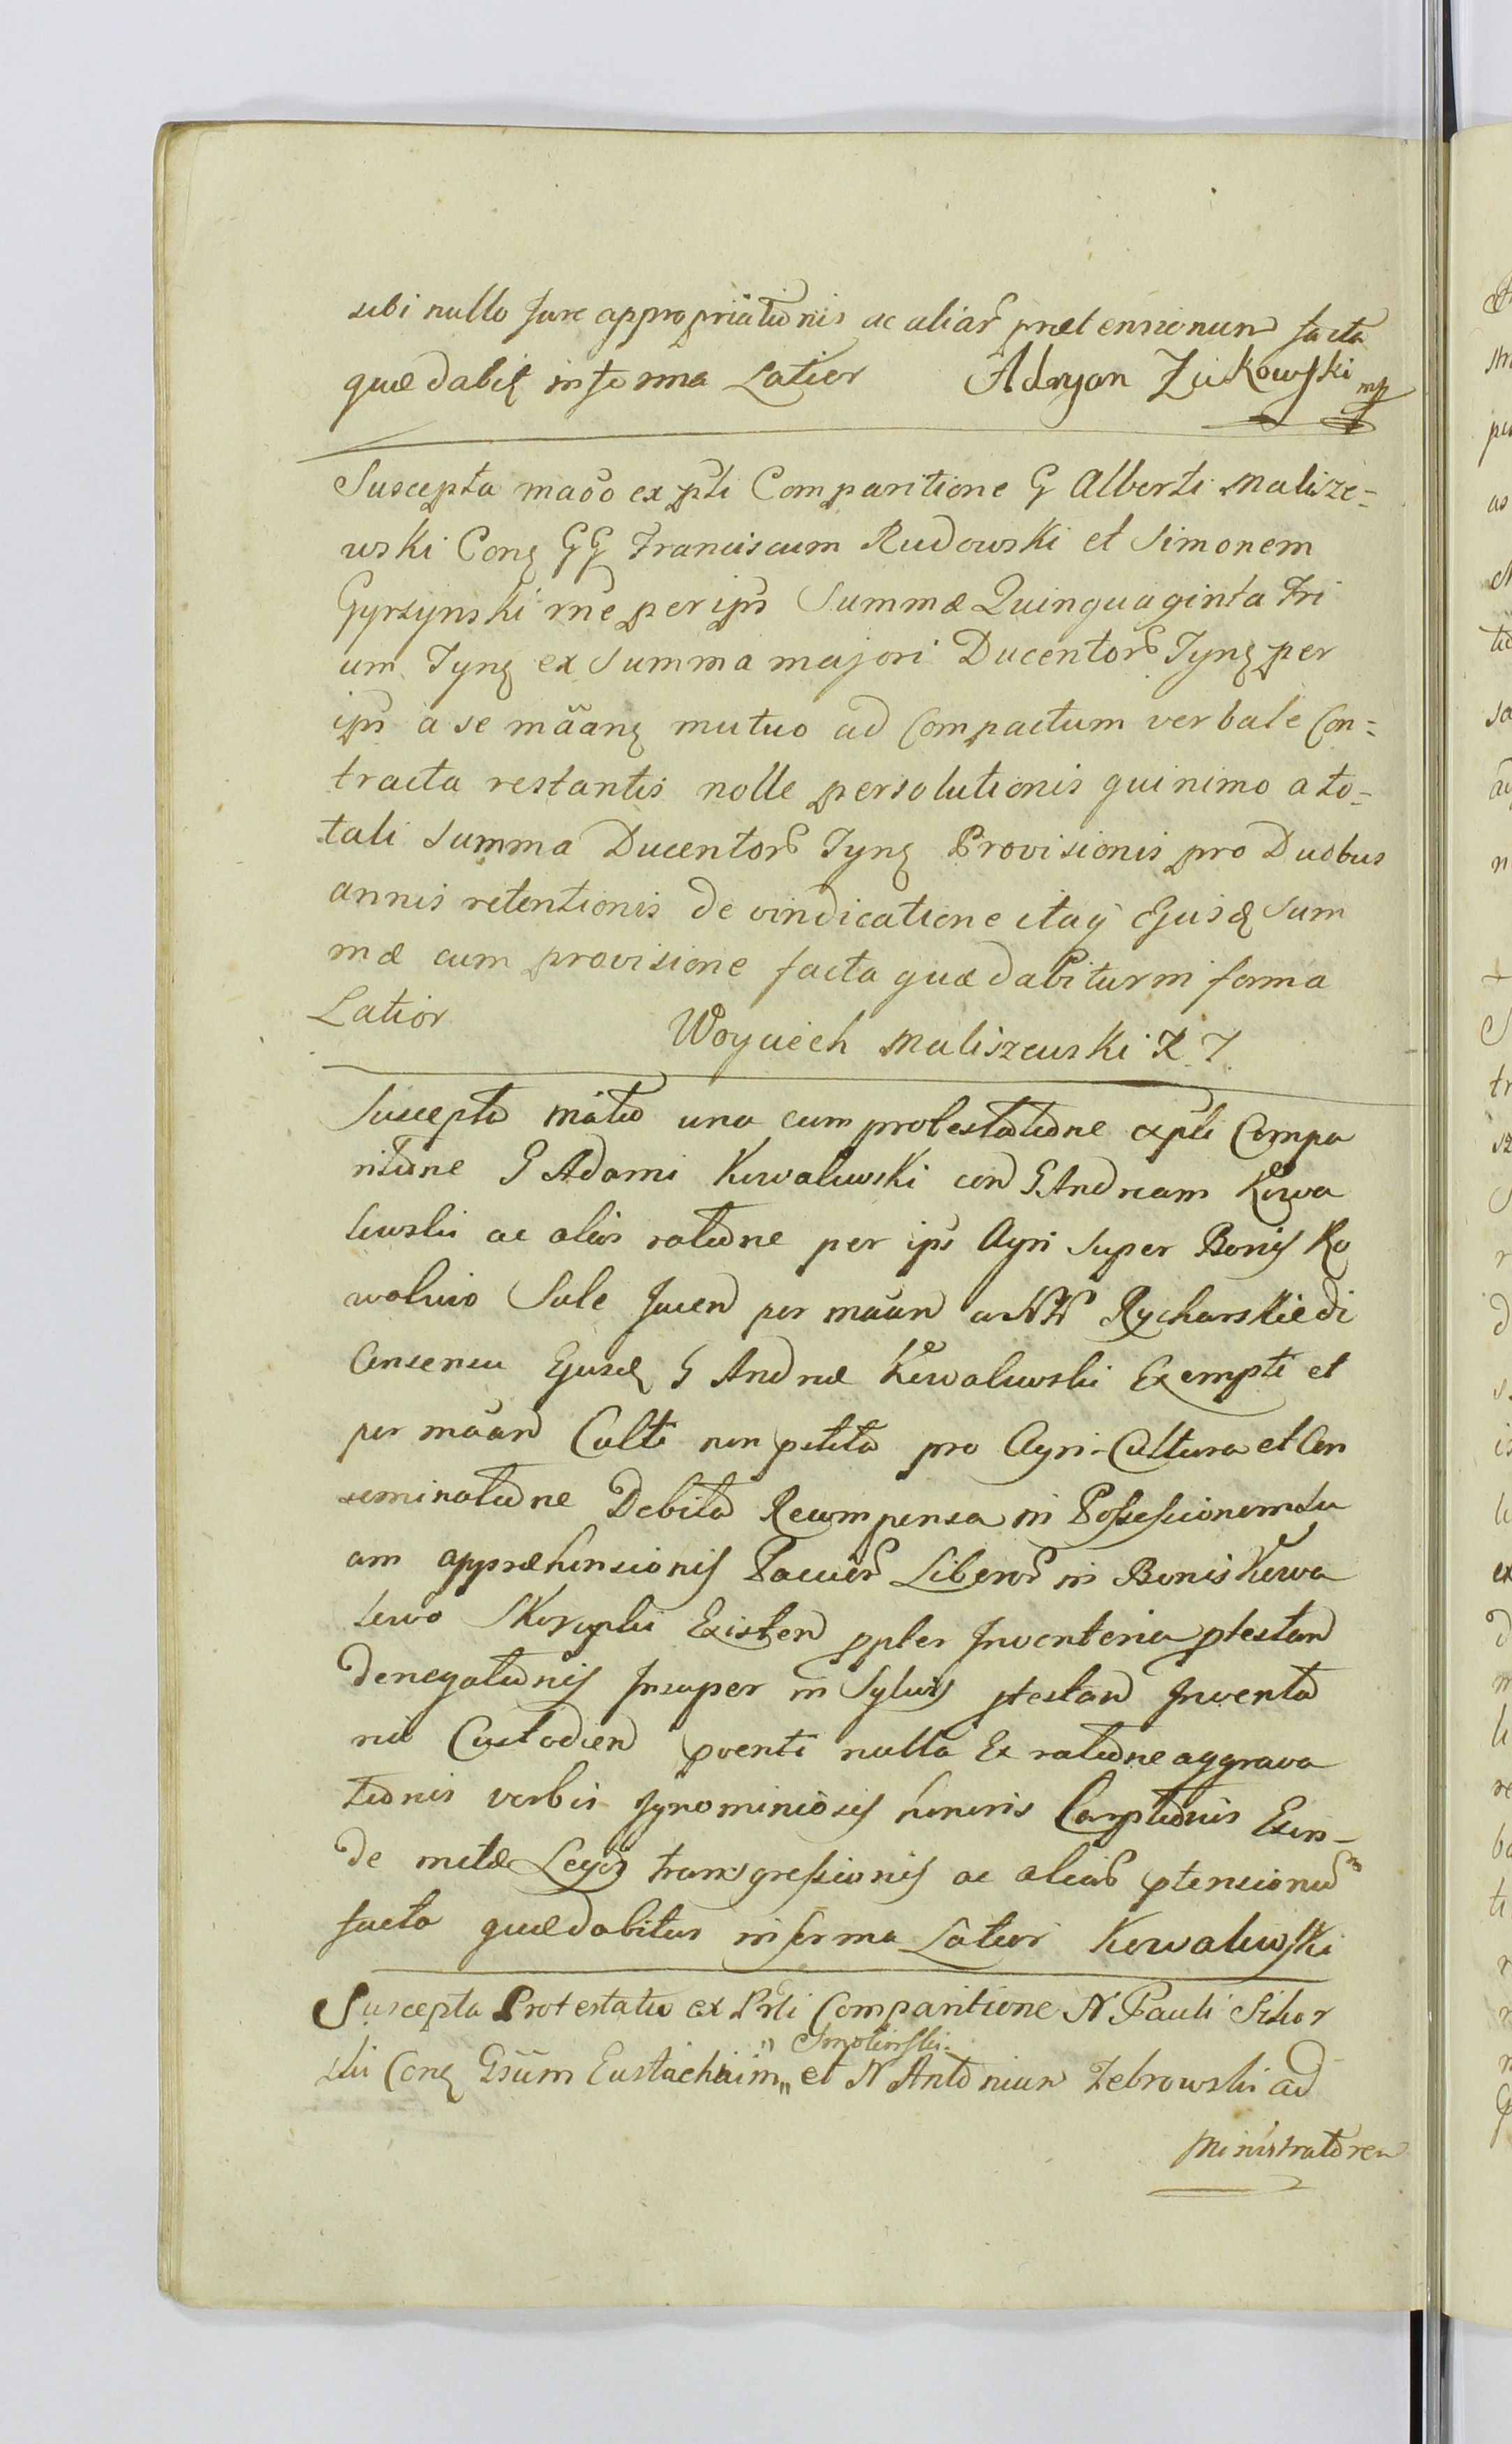 sibi nullo Jure appropriationis ac aliar prætensionum facta
quæ dabit in forma Latior Adryan Zukowski mp
Suscepta maõo ex pti Comparitione G Alberti Malisze=
wski Con GG Franciscum Rudowski et Simonem
Gyrzynski rñe per ips Summæ Quinquaginta Tri
um Tyn ex Summa majori Ducentor Tyn per
ips a se mãan mutuo ad Compactum verbale Con=
tracta restantis nolle persolutionis quinimo a to=
tali Summa Ducentor Tyn Provisionis pro Duobus
annis retentionis de vindicatione itaq Ejusd Sum
mæ cum provisione facta quæ dabitur in forma
Latior Woyciech Maliszewski K T
Suscepta mãtio una cum protestatione ex pti Compa
ritione G Adami Kowalewski con G Andream Kowa
lewski ac alios ratione per ips Agri super Bonis Ko
walewo Sule Jacen per mãan a NN Rycharski
Consensu Ejusd G Andreæ Kowalewski Exempti et
per mãan Culti non petita pro Agri-Cultura et Con
seminatione Debita Recompensa in Possessionem su
am appræhensionis Liberor in Bonis Kowa
lewo Skorupki Existen ppter Inventeria ptestan
denegationis Insuper in Sylvis ptestan Inventa
rii Custodien pventi nulla Ex ratione aggrava
tionis verbis Ignominiosis honoris Carptionis Exin-
de metæ Legis transgressionis ac aliar ptensionum
facta quæ dabitur in forma Latior Kowalewski
Suscepta Protestatio ex Prti Comparitione N Pauli Sikor
ski Con Gsum Eustachium „ Smolinski „ et N Antonium Zebrowski ad
ministratorem